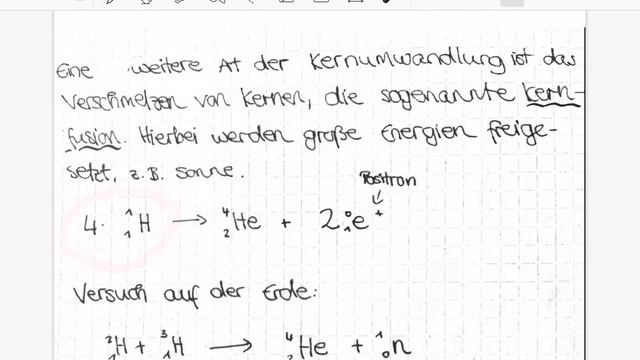 Eine weitere Art der Kernumwandlung ist das
Verschmelzen von Kernen, die sogenannte Kern-
fusion. Hierbei werden große Energien freige-
setzt, z.B. Sonne.
Positron
4 · ¹₁H → ⁴₂He + 2 ⁰₁e⁺
Versuch auf der Erde:
²₁H + ³₁H → ⁴₂He + ¹₀n